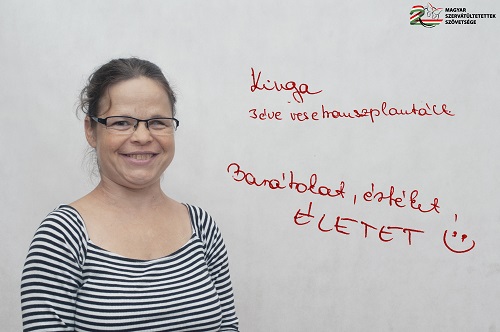 MAGYAR
SZERVÁTÜLTETETTEK
SZÖVETSÉGE
Kinga
3 éve vesetranszplantált
Barátokat, értéket,
ÉLETET